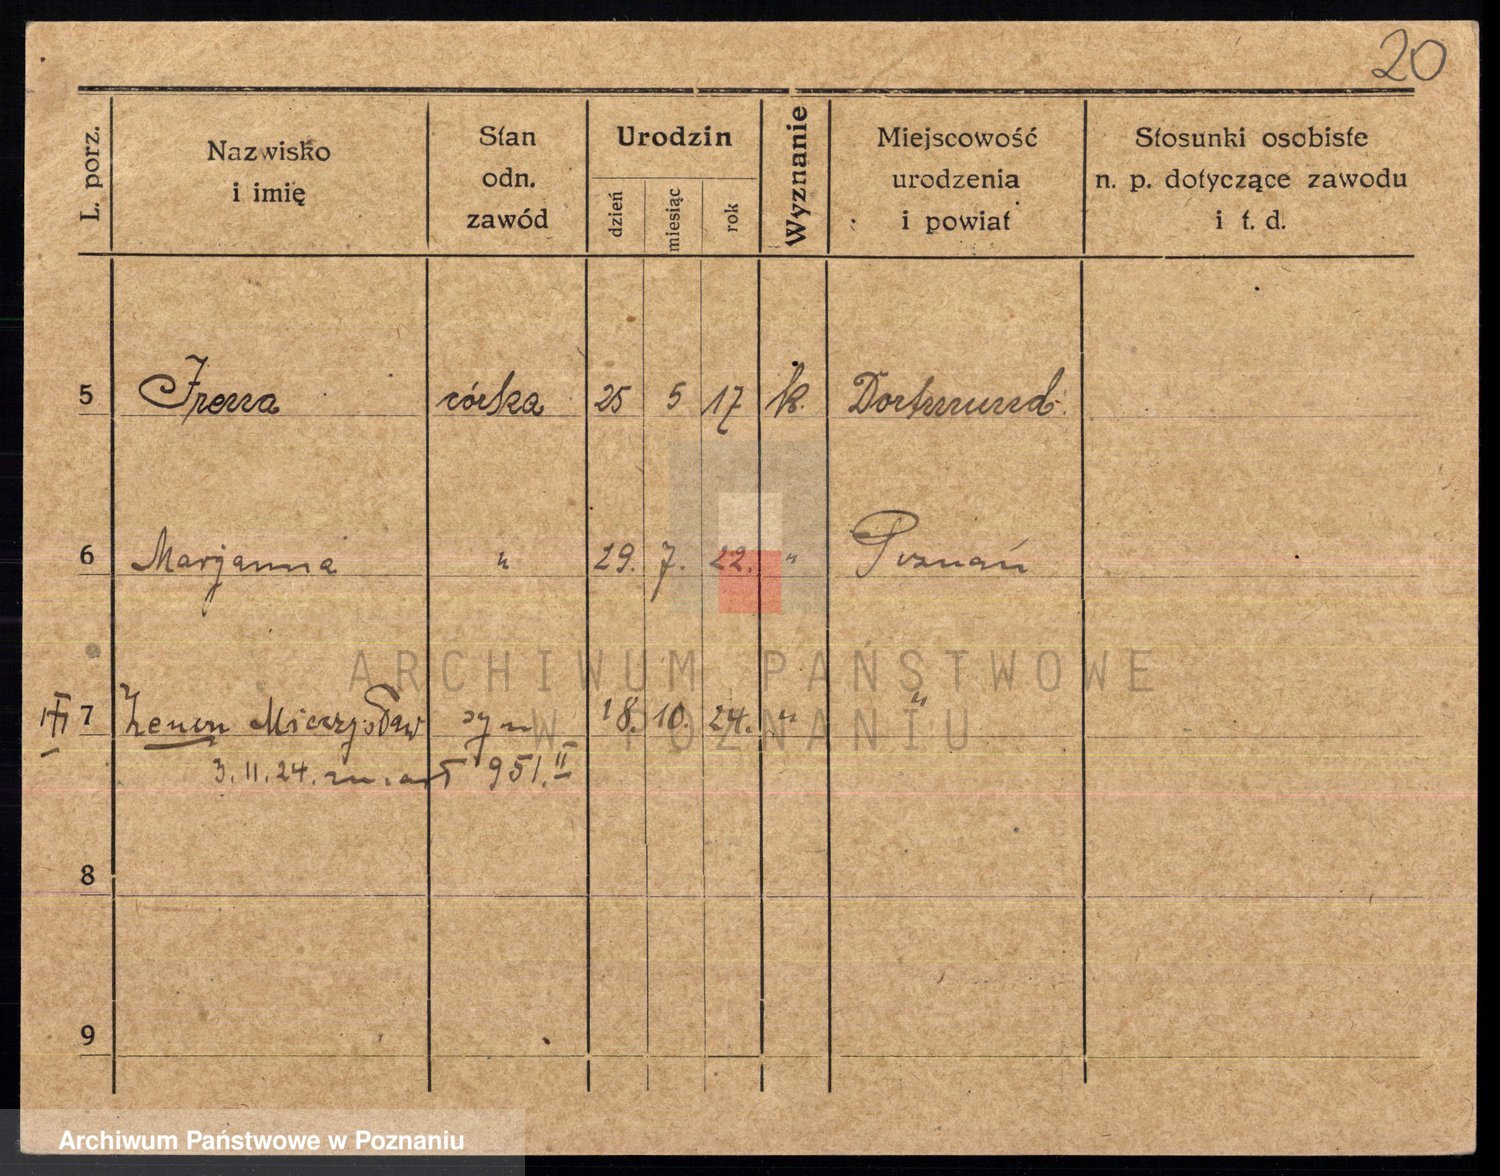 20
L. porz.
Nazwisko
i imię
Stan
odn.
zawód
Urodzin
dzień
miesiąc
rok
Wyznanie
Miejscowość
urodzenia
i powiat
Stosunki osobiste
n. p. dotyczące zawodu
i t. d.
5 Irena córka 25 5 17 k. Dortmund.
6 Marjanna " 29. 7. 22. " Poznań
ARCHIWUM PAŃSTWOWE
W POZNANIU
7 Zenon Mieczysław syn 18. 10. 24. " "
3.11.24. zmarł 951.II
8
9
Archiwum Państwowe w Poznaniu